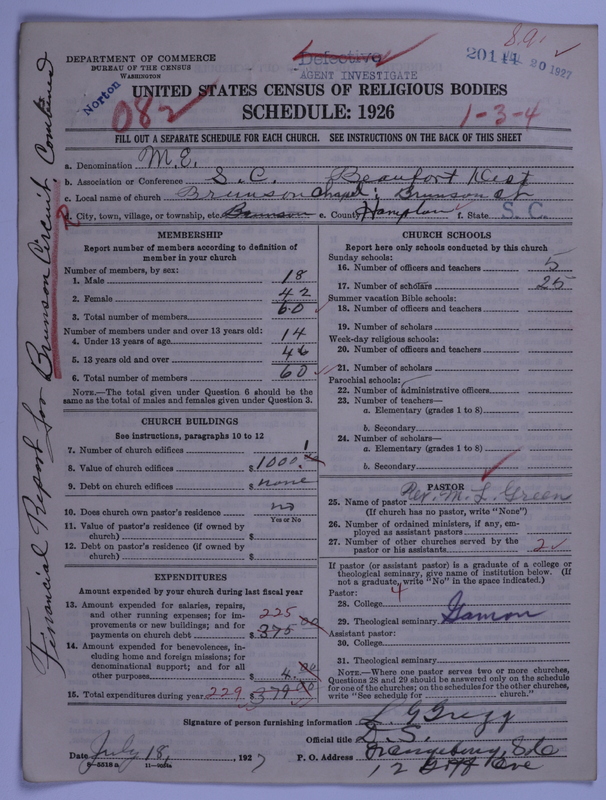 8.91
DEPARTMENT OF COMMERCE
BUREAU OF THE CENSUS
WASHINGTON
Defective
AGENT INVESTIGATE
20 1927
Norton
082
UNITED STATES CENSUS OF RELIGIOUS BODIES
SCHEDULE: 1926
1-3-4
FILL OUT A SEPARATE SCHEDULE FOR EACH CHURCH. SEE INSTRUCTIONS ON THE BACK OF THIS SHEET
a. Denomination M.E.
b. Association or Conference S.C. Beaufort Dist
c. Local name of church Brunson Chapel; Brunson
R d. City, town, village, or township, etc. Brunson e. County Hampton f. State S.C.
Financial Report for Brunson Circuit, Combined
MEMBERSHIP
Report number of members according to definition of member in your church
Number of members, by sex:
1. Male 18
2. Female 42
3. Total number of members 60
Number of members under and over 13 years old:
4. Under 13 years of age 14
5. 13 years old and over 46
6. Total number of members 60
NOTE.—The total given under Question 6 should be the same as the total of males and females given under Question 3.
CHURCH BUILDINGS
See instructions, paragraphs 10 to 12
7. Number of church edifices 1
8. Value of church edifices $ 1000.
9. Debt on church edifices $ none
10. Does church own pastor's residence no
Yes or No
11. Value of pastor's residence (if owned by church) $
12. Debt on pastor's residence (if owned by church) $
EXPENDITURES
Amount expended by your church during last fiscal year
13. Amount expended for salaries, repairs, and other running expenses; for improvements or new buildings; and for payments on church debt 225 $ 375 00
14. Amount expended for benevolences, including home and foreign missions; for denominational support; and for all other purposes $ 4.00
15. Total expenditures during year 229 $ 379 00
CHURCH SCHOOLS
Report here only schools conducted by this church
Sunday schools:
16. Number of officers and teachers 5
17. Number of scholars 25
Summer vacation Bible schools:
18. Number of officers and teachers
19. Number of scholars
Week-day religious schools:
20. Number of officers and teachers
21. Number of scholars
Parochial schools:
22. Number of administrative officers
23. Number of teachers—
a. Elementary (grades 1 to 8)
b. Secondary
24. Number of scholars—
a. Elementary (grades 1 to 8)
b. Secondary
PASTOR
25. Name of pastor Rev. M. L. Green
(If church has no pastor, write "None")
26. Number of ordained ministers, if any, employed as assistant pastors
27. Number of other churches served by the pastor or his assistants 2
If pastor (or assistant pastor) is a graduate of a college or theological seminary, give name of institution below. (If not a graduate, write "No" in the space indicated.)
Pastor: 4
28. College
29. Theological seminary Gamon
Assistant pastor:
30. College
31. Theological seminary
NOTE.—Where one pastor serves two or more churches, Questions 28 and 29 should be answered only on the schedule for one of the churches; on the schedules for the other churches, write "See schedule for church."
Signature of person furnishing information L. G Gregg
Official title D. S.
Date July 18, 1927 P. O. Address Orangeburg, S.C
12 Ave